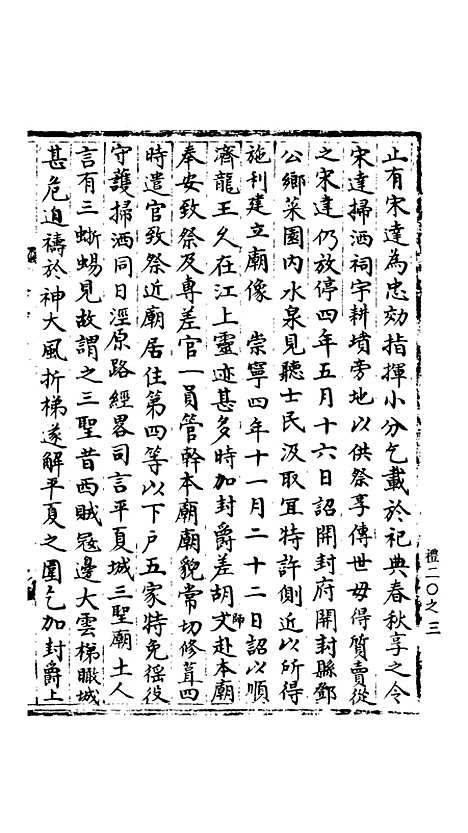 止有宋達為忠効指揮小分乞載於祀典春秋享之令
宋達掃洒祠宇耕墳旁地以供祭享傳世毋得質賣從
之宋達仍放停四年五月十六日詔開封府開封縣鄧
公鄉菜園內水泉見聽士民汲取冝特許側近以所得
施利建立廟像 崇寧四年十一月二十二日詔以順
濟龍王久在江上靈迹甚多時加封爵差胡文師赴本廟
奉安致祭及專差官一員管幹本廟廟貌常切修葺四
時遣官致祭近廟居住第四等以下戶五家特免徭役
守護掃洒同日涇原路經畧司言平夏城三聖廟土人
言有三蜥蜴見故謂之三聖昔西賊冦邊大雲梯瞰城
甚危迫禱於神大風折梯遂解平夏之圍乞加封爵上
禮二〇之三